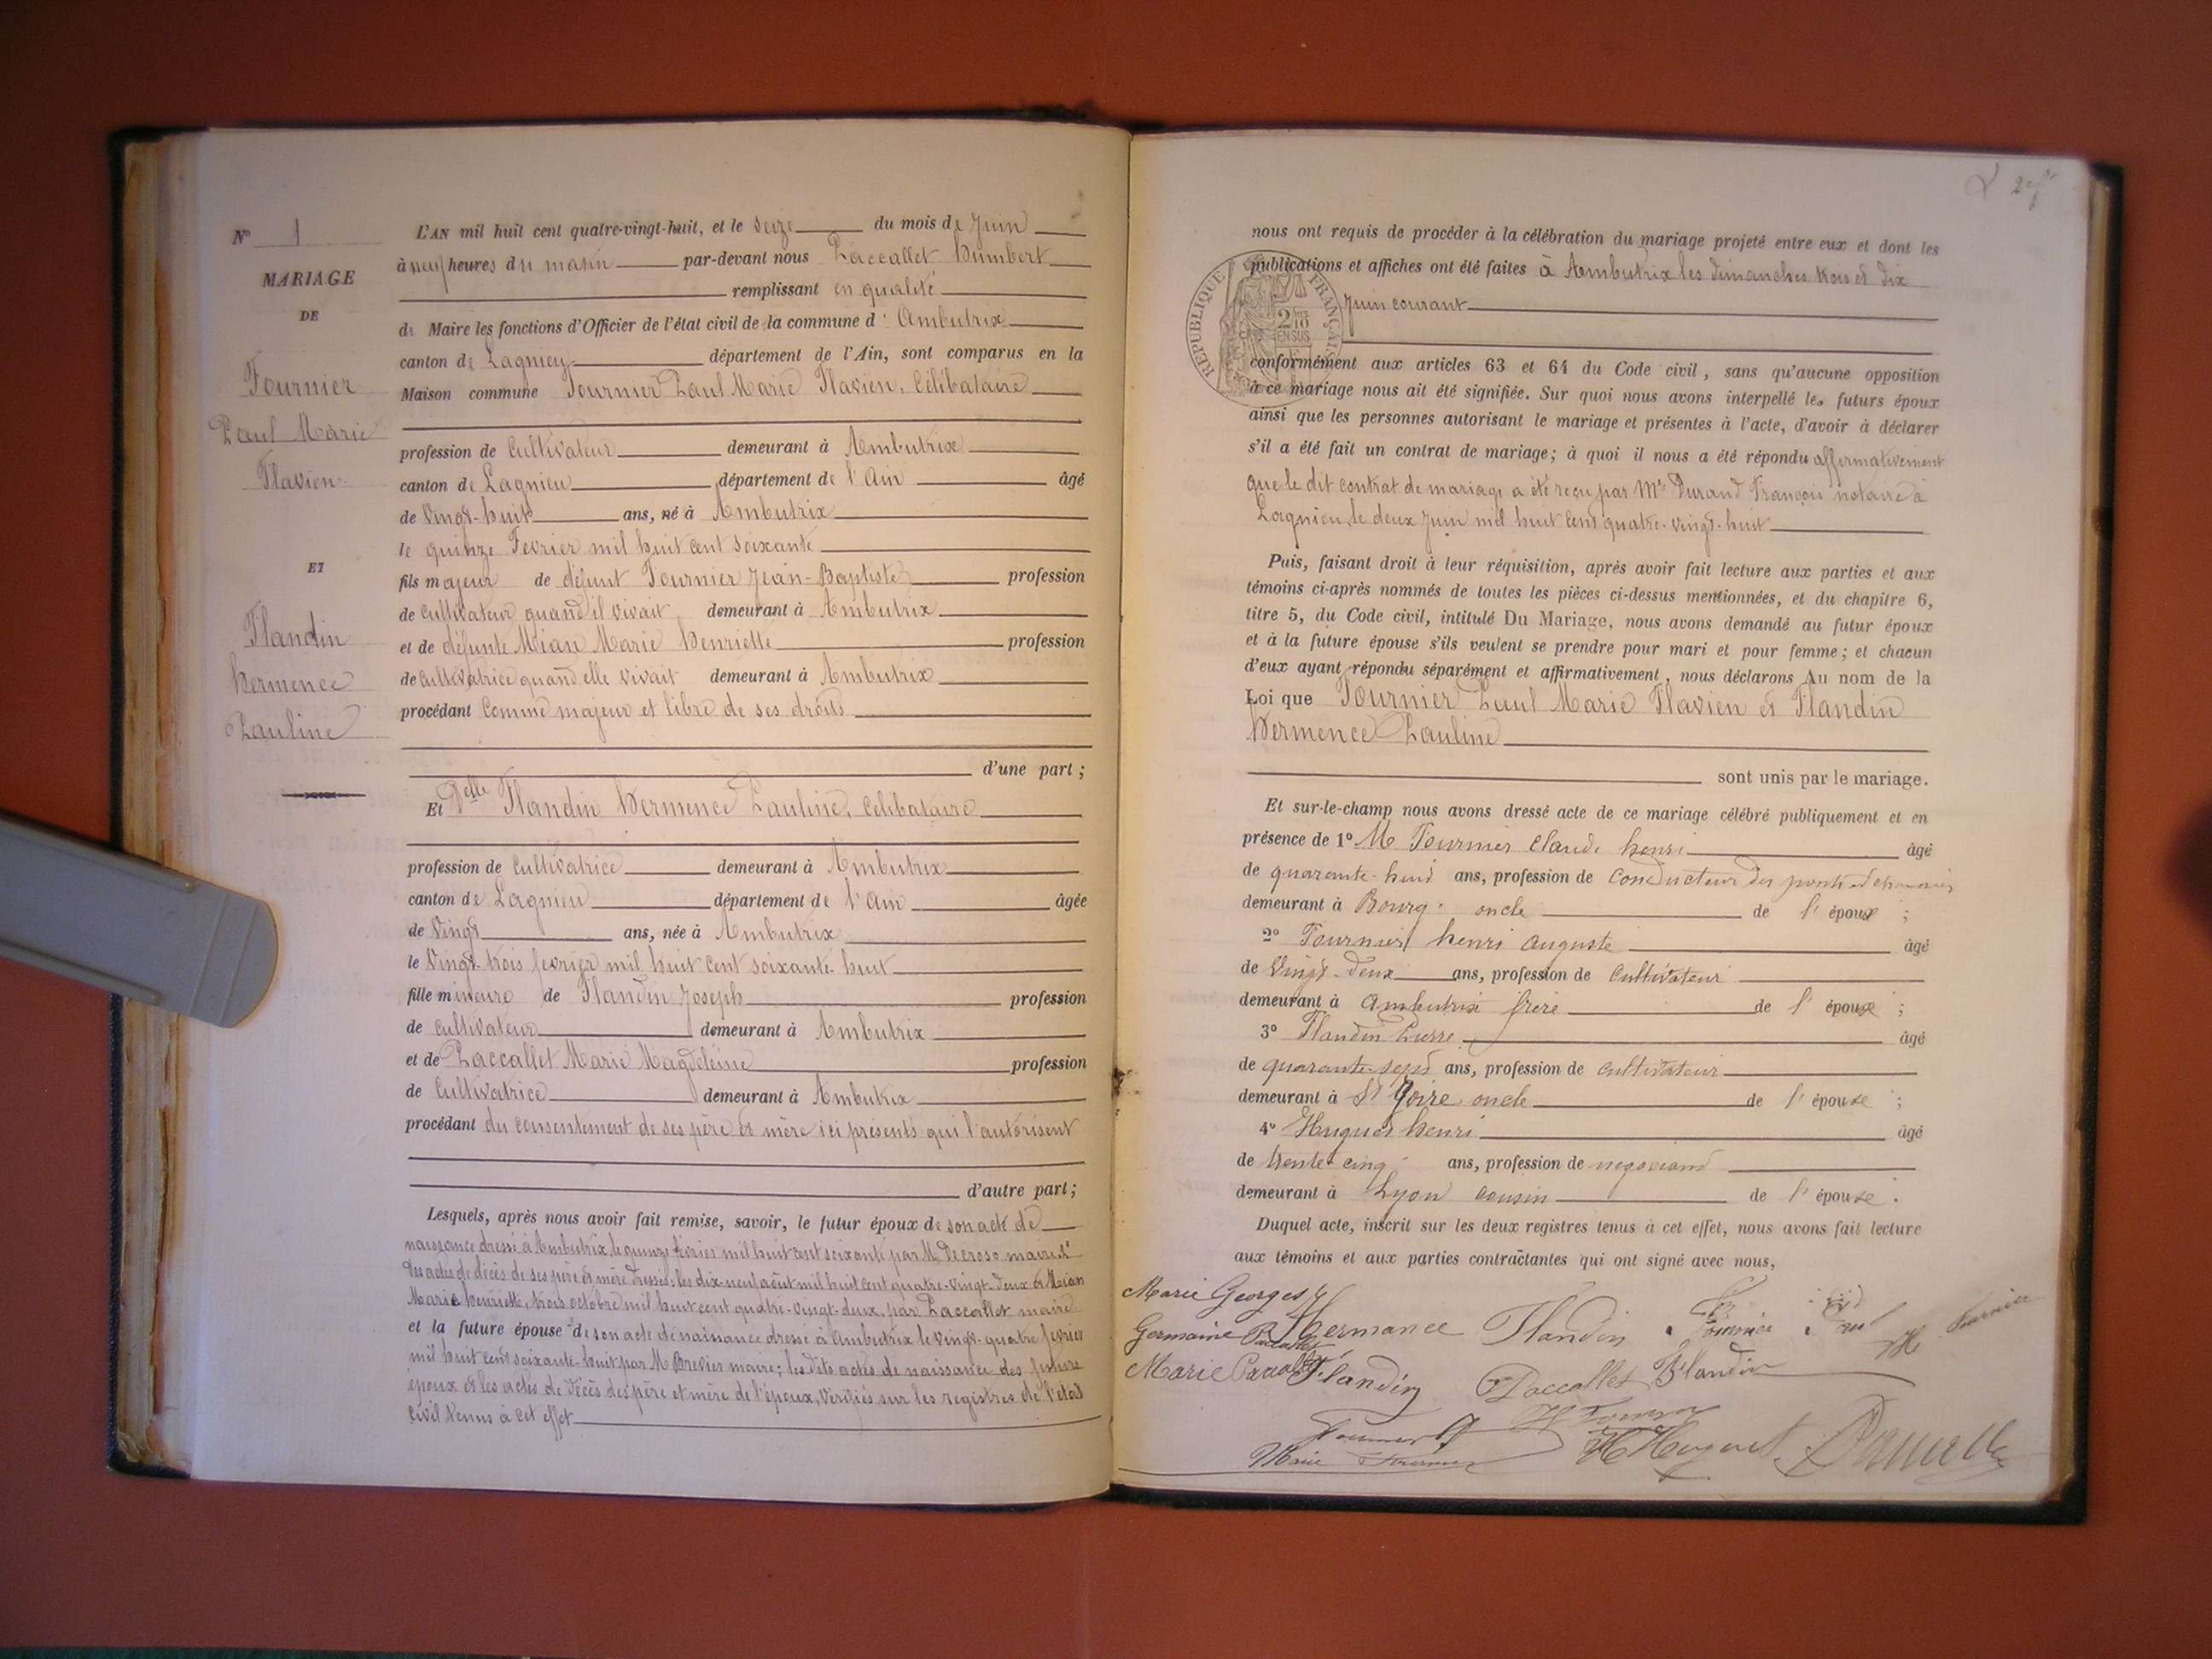 N° 1
MARIAGE
DE
Fournier
Paul Marie
Flavien
ET
Flandin
hermence
Pauline
L'AN mil huit cent quatre-vingt-huit, et le seize du mois de Juin
à neuf heures du matin par-devant nous Paccallet humbert
remplissant en qualité
de Maire les fonctions d'Officier de l'état civil de la commune d' Ambutrix
canton de Lagnieu département de l'Ain, sont comparus en la
Maison commune Fournier Paul Marie Flavien, Célibataire
profession de Cultivateur demeurant à Ambutrix
canton de Lagnieu département de l'Ain âgé
de Vingt-huit ans, né à Ambutrix
le quinze Fevrier mil huit cent soixante
fils majeur de défunt Fournier Jean-Baptiste profession
de cultivateur quand il vivait demeurant à Ambutrix
et de défunte Mian Marie henriette profession
de cultivatrice quand elle vivait demeurant à Ambutrix
procédant comme majeur et libre de ses droits
d'une part ;
Et Delle Flandin hermence Pauline, celibataire
profession de cultivatrice demeurant à Ambutrix
canton de Lagnieu département de l'Ain âgée
de Vingt ans, née à Ambutrix
le Vingt-trois fevrier mil huit cent soixante-huit
fille mineure de Flandin Joseph profession
de cultivateur demeurant à Ambutrix
et de Paccallet Marie Magdeleine profession
de Cultivatrice demeurant à Ambutrix
procédant du consentement de ses père et mère ici présents qui l'autorisent
d'autre part ;
Lesquels, après nous avoir fait remise, savoir, le futur époux de son acte de
naissance dressé à Ambutrix le quinze fevrier mil huit cent soixante par M Decroso maire et
des actes de décès de ses père et mère dressés: les dix-neuf août mil huit cent quatre-vingt-deux et Mian
Marie henriette, trois octobre mil huit cent quatre-vingt-deux, par Paccallet maire
et la future épouse de son acte de naissance dressé à Ambutrix le vingt-quatre fevrier
mil huit cent soixante-huit par M Brevier maire; les dits actes de naissance des futurs
époux et les actes de décès des père et mère de l'époux, vérifiés sur les registres de l'état
civil tenus à cet effet
nous ont requis de procéder à la célébration du mariage projeté entre eux et dont les
publications et affiches ont été faites à Ambutrix les dimanches trois et dix
Juin courant
REPUBLIQUE FRANÇAISE
2/10 EN SUS
conformément aux articles 63 et 64 du Code civil, sans qu'aucune opposition
à ce mariage nous ait été signifiée. Sur quoi nous avons interpellé les futurs époux
ainsi que les personnes autorisant le mariage et présentes à l'acte, d'avoir à déclarer
s'il a été fait un contrat de mariage; à quoi il nous a été répondu affirmativement
que le dit contrat de mariage a été reçu par Me Durand François notaire à
Lagnieu, le deux Juin mil huit cent quatre-vingt-huit
Puis, faisant droit à leur réquisition, après avoir fait lecture aux parties et aux
témoins ci-après nommés de toutes les pièces ci-dessus mentionnées, et du chapitre 6,
titre 5, du Code civil, intitulé Du Mariage, nous avons demandé au futur époux
et à la future épouse s'ils veulent se prendre pour mari et pour femme; et chacun
d'eux ayant répondu séparément et affirmativement, nous déclarons Au nom de la
Loi que Fournier Paul Marie Flavien et Flandin
hermence Pauline
sont unis par le mariage.
Et sur-le-champ nous avons dressé acte de ce mariage célébré publiquement et en
présence de 1° M Fournier Claude henri âgé
de quarante-huit ans, profession de Conducteur des ponts et chaussées
demeurant à Bourg oncle de l'époux ;
2° Fournier henri auguste âgé
de Vingt-deux ans, profession de Cultivateur
demeurant à Ambutrix frère de l'époux ;
3° Flandin Pierre âgé
de quarante-sept ans, profession de cultivateur
demeurant à St oncle de l'épouse ;
4° henri âgé
de trente-cinq ans, profession de negociant
demeurant à Lyon cousin de l'épouse.
Duquel acte, inscrit sur les deux registres tenus à cet effet, nous avons fait lecture
aux témoins et aux parties contractantes qui ont signé avec nous,
Marie Georges
Germaine Paccallet Hermance Flandin Fournier Paul H Fournier
Marie Paccallet Flandin Paccallet Flandin
Fournier H Fournier
Marie Fournier H Huguet